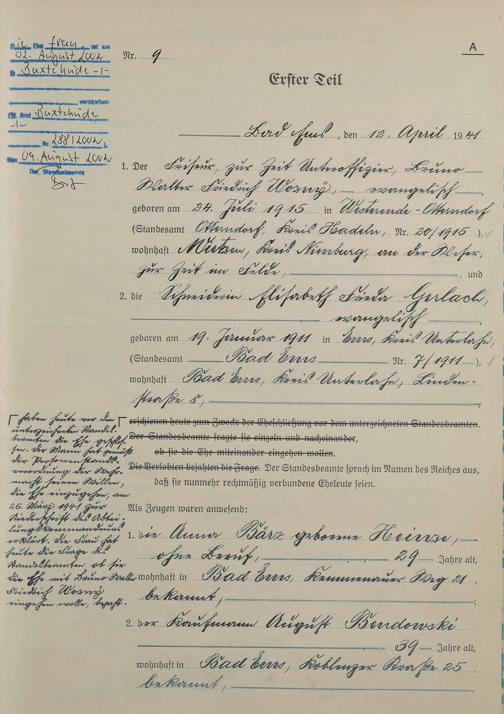 A
Die Ehefrau ist am
02. August 2002
in Buxtehude -1-
verstorben
St. Amt Buxtehude
-1-
Nr. 288/2002
Den 09. August 2002
Der Standesbeamte
Nr. 9
Erster Teil
Bad Ems, den 12. April 1941
1. Der Friseur, zur Zeit Unteroffizier, Bruno
Walter Friedrich Wosny, evangelisch
geboren am 24. Juli 1915 in Westerende-Otterndorf
(Standesamt Otterndorf, Kreis Hadeln, Nr. 20/1915),
wohnhaft Kreis Nienburg, an der Weser,
zur Zeit im Felde, und
2. die Schneiderin Elisabeth Frieda Gerlach,
evangelisch
geboren am 19. Januar 1911 in Ems, Kreis Unterlahn,
(Standesamt Bad Ems Nr. 7/1911),
wohnhaft Bad Ems, Kreis Unterlahn, Linden-
straße 8,
erschienen heute zum Zwecke der Eheschließung vor dem unterzeichneten Standesbeamten.
Der Standesbeamte fragte sie einzeln und nacheinander,
ob sie die Ehe miteinander eingehen wollen.
Die Verlobten bejahten die Frage. Der Standesbeamte sprach im Namen des Reiches aus,
daß sie nunmehr rechtmäßig verbundene Eheleute seien.
haben heute vor dem
unterzeichneten Standes-
beamten die Ehe geschlos-
sen. Der Mann hat gemäß
der Personenstands-
verordnung der Wehr-
macht seinen Willen,
die Ehe einzugehen, am
25. März 1941 zur
Niederschrift des
erklärt. Die Frau hat
heute die Frage des
Standesbeamten, ob sie
die Ehe mit Bruno Walter
Friedrich Wosny
eingehen wolle, bejaht.
Als Zeugen waren anwesend:
1. die Anna Bärz geborene Heinse,
ohne Beruf, 29 Jahre alt,
wohnhaft in Bad Ems, Kemmenauer Weg 21.
bekannt,
2. der Kaufmann August Bendowski
39 Jahre alt,
wohnhaft in Bad Ems, Koblenzer Straße 25.
bekannt,